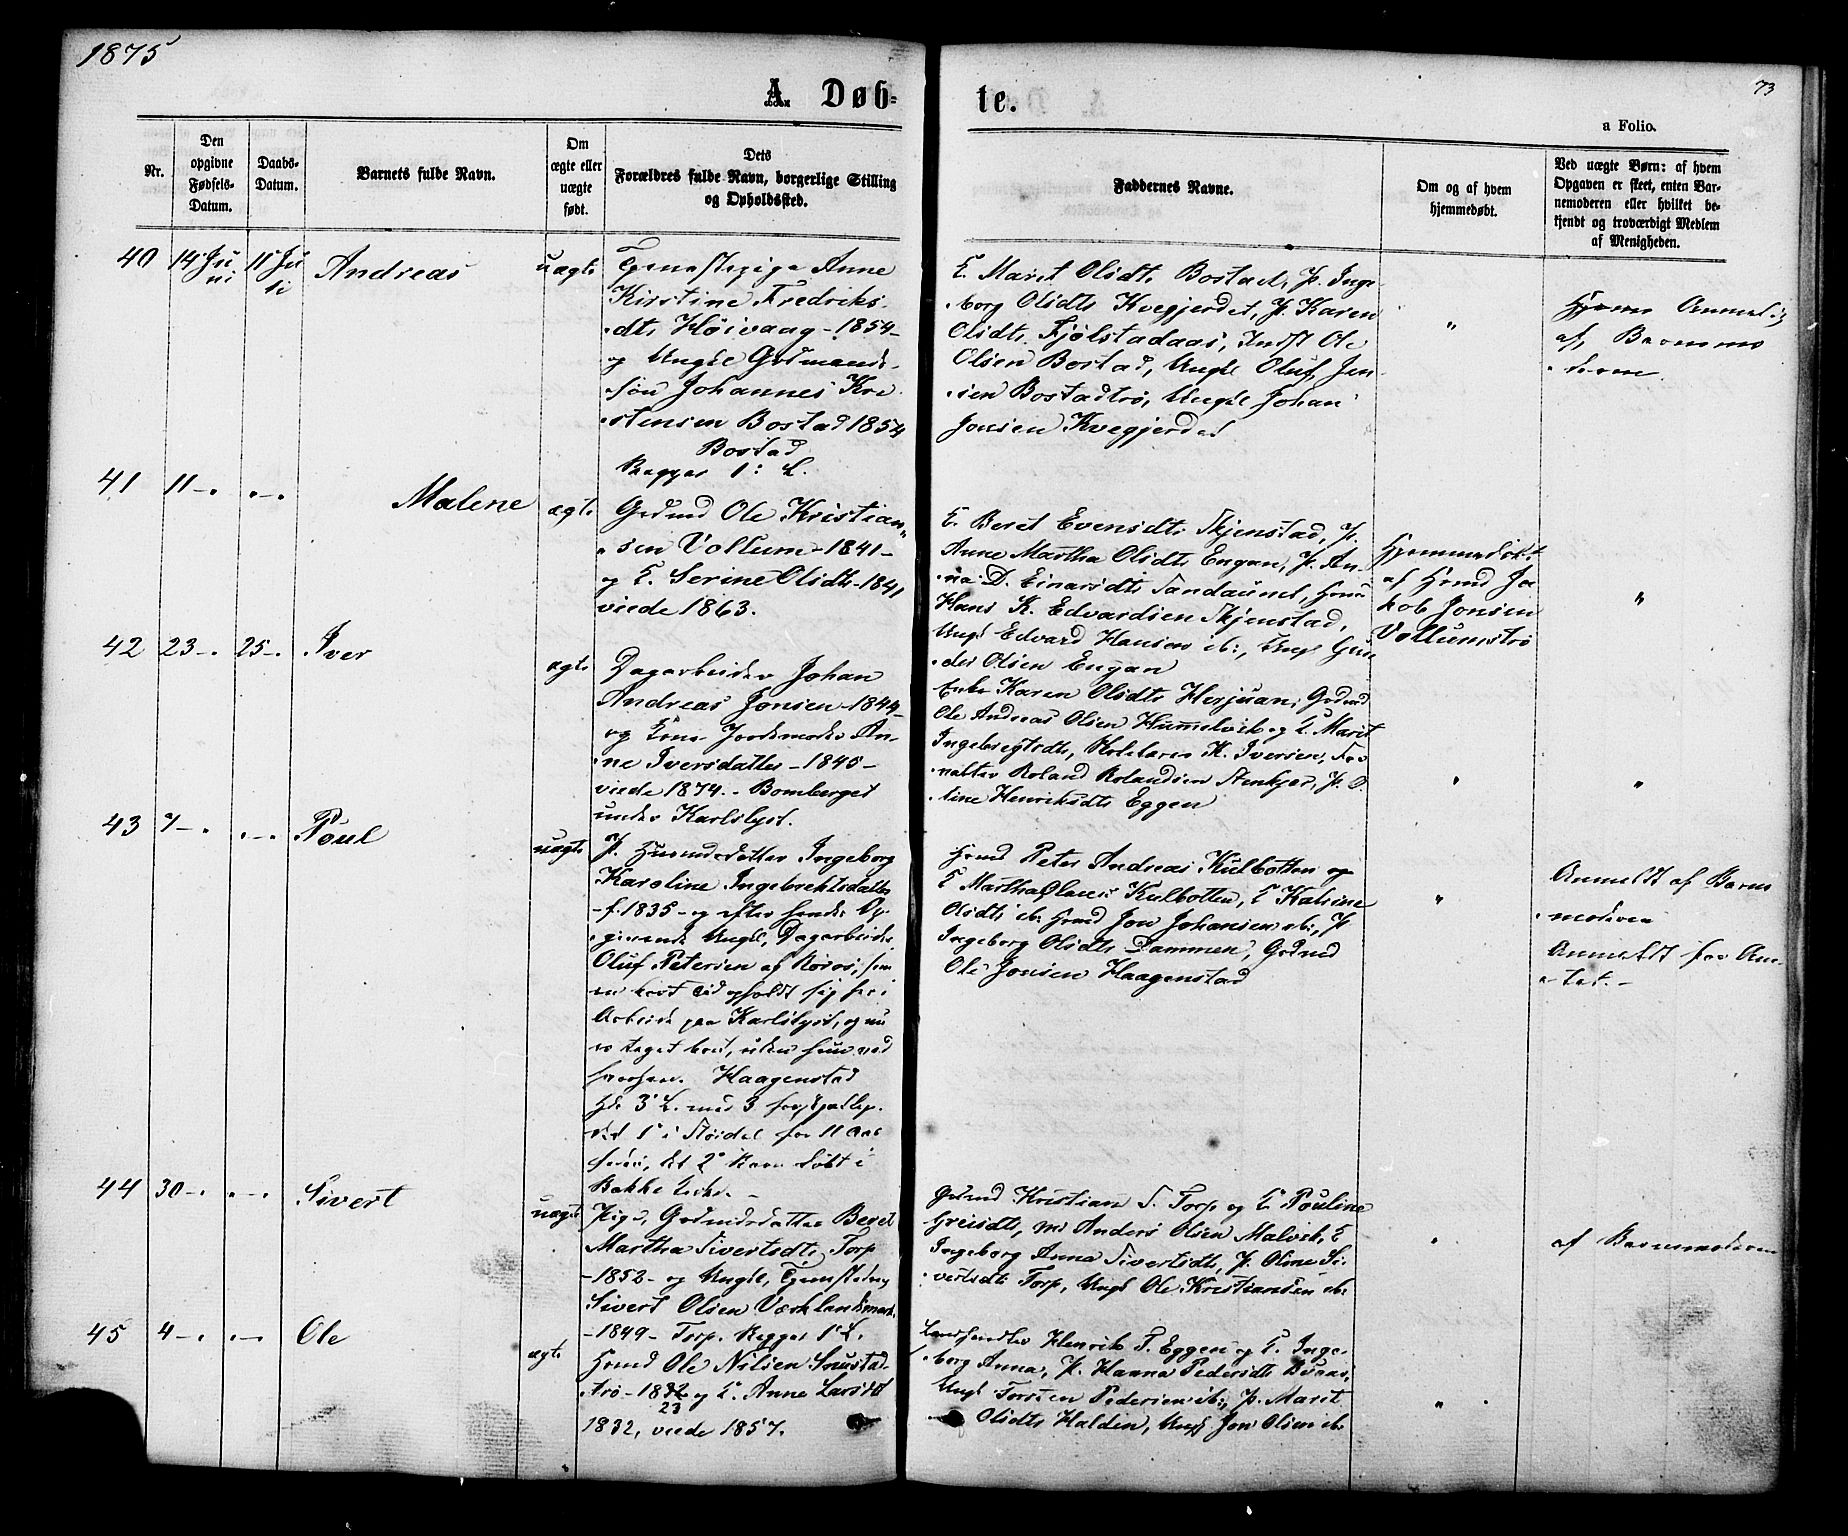 1875
73
A. Døb-
te.
a Folio.
Nr.
Den
opgivne
Fødsels-
Datum.
Daabs-
Datum.
Barnets fulde Navn.
Om
ægte eller
uægte
født.
Dets
Forældres fulde Navn, borgerlige Stilling
og Opholdssted.
Faddernes Navne.
Om og af hvem
hjemmedøbt.
Ved uægte Børn: af hvem
Opgaven er skeet, enten Bar-
nemoderen eller hvilket be-
kjendt og troværdigt Medlem
af Menigheden.
40 14 Ju 11 Ju Andreas uægte
ni li
Tjenestepige Anne
Kirstine Fredriks
dtr Høivaag - 1854 -
og Ungkl Gdmands-
søn Johannes Kri
stensen Bostad 1854
Bostad
Begges 1: L.
K. Marit Olsdtr Bostad, P. Inge
borg Olsdtr Kvegjerdet, P. Karen
Olsdtr Fjølstadaas, Indst Ole
Olsen Bostad, Ungkl Oluf Jen
sen Bostadtrø, Ungkl Johan
Jonsen Kvegjerdet
"
af Barnemo
deren
41 11 -" -"- Malene ægte
Gdmd Ole Kristian
sen Vollum - 1841 -
og K. Serine Olsdtr - 1841
viede 1863.
K. Beret Evensdtr Skjenstad, P.
Anne Martha Olsdtr Engan, P. An-
na D. Einarsdtr Sandaunet, Hmd
Hans K. Edvardsen Skjenstad,
Ungk Edvard Hansen ib:, Ungk Gun
der Olsen Engan
Hjemmedøbt
af Hmd Ja
kob Jonsen
Vollumstrø
"
42 23 -" 25 -" Iver ægte
Dagarbeider Johan
Andreas Jonsen - 1844 -
og Kone Jordemoder An-
ne Iversdatter - 1845 -
viede 1874. - Bomberget
under Karlslyst.
Enke Karen Olsdtr Herjuan, Gdmd
Ole Andreas Olsen Hummelvik og K. Marit
Ingebregtsdtr, K. Iversen,
Roland Rolandsen Stenkjer, P. O
line Henriksdtr Eggen
"
"
43 7 -" -"- Poul uægte
P. Huusmdsdatter Ingeborg
Karoline Ingebrektsdatter
- f. 1835 - og efter hendes Op
givende Ungkl, Dagarbeider
Oluf Petersen af Røros, som
en kort Tid opholdt sig her i
Arbeide paa Karlslyst, og nu
er taget bort, uden hun ved
hvorhen. Haagenstad
Hds 3' L. med 3 forskjellige.
Det 1' i Støidal for 11 Aar
siden, det 2' Barn døbt i
Bakke Kirke. -
Hmd Peter Andreas Kulbotten og
K Martha Olava Kulbotten, K Katrine
Olsdtr ib: Hmd Jon Johansen ib:, P
Ingeborg Olsdtr Dammen, Gdmd
Ole Jonsen Haagenstad
"
Anmeldt af Barne
moderen
Anmeldt for Am
tet. -
44 30 -" -"- Sivert uægte
Pige, Gdmdsdatter Beret
Martha Sivertsdtr Torp
- 1852 - og Ungkl, Tjenestedreng
Sivert Olsen Værklandsmark
- 1849 - Torp. Begges 1' L.
Gdmd Kristian S. Torp og K. Pouline
Greisdtr, Anders Olsen Malvik, K
Ingeborg Anna Sivertsdtr, P. Oline Si
vertsdtr Torp, Ungk Ole Kristiansen ib:
"
af Barnemoderen
45 4 -" -"- Ole ægte
Hmd Ole Nilsen Snustad
trø - 1832 og K. Anne Larsdtr
23
1832, viede 1857.
Landhandler Henrik P. Eggen og K. Inge-
borg Anna, P. Hanna Pedersdtr Buaas,
Ungk Torsten Pedersen ib:, P. Marit
Olsdtr Halden, Ungk Jon Olsen ib:
"
"